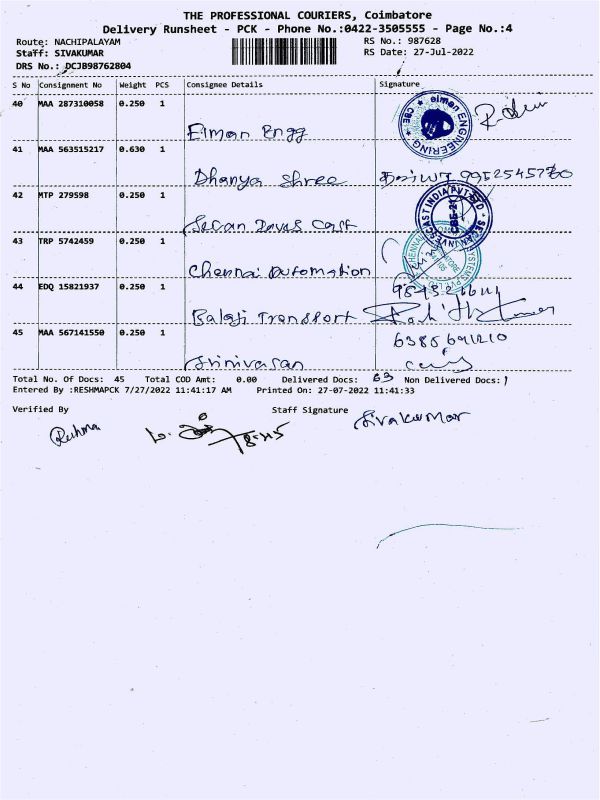 THE PROFESSIONAL COURIERS, Coimbatore
Delivery Runsheet - PCK - Phone No.:0422-3505555 - Page No.:4
Route: NACHIPALAYAM RS No.: 987628
Staff: SIVAKUMAR RS Date: 27-Jul-2022
DRS No.: DCJB98762804
S No Consignment No Weight PCS Consignee Details Signature
40 MAA 287310058 0.250 1
Elman Engg
elman ENGINEERING CBE
41 MAA 563515217 0.630 1
Dhanya Shree 9952545760
42 MTP 279598 0.250 1
Secan Cast
43 TRP 5742459 0.250 1
Chennai Automation
44 EDQ 15821937 0.250 1
Balaji Transport
45 MAA 567141550 0.250 1 6385691210
Srinivasan
Total No. Of Docs: 45 Total COD Amt: 0.00 Delivered Docs: Non Delivered Docs: 1
Entered By :RESHMAPCK 7/27/2022 11:41:17 AM Printed On: 27-07-2022 11:41:33
Verified By Staff Signature Sivakumar
Reshma